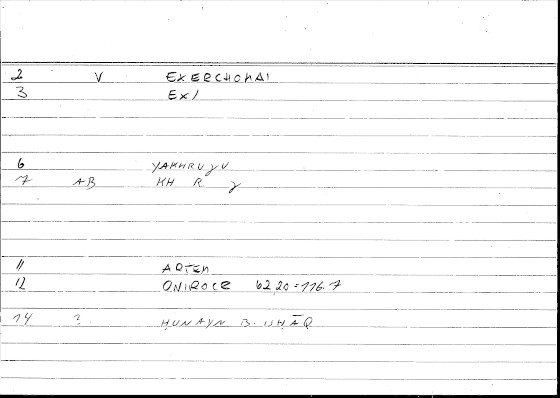 2 V EXERCHOMAI
3 EXI
6 YAKHRUɣU
7 AB KH R ɣ
11 ARTEM
12 ONIROCR 62,20=116.7
14 ? ḤUNAYN B. ISḤĀQ